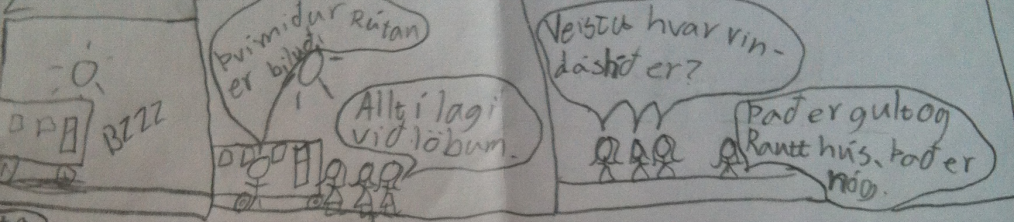 BZZZ
Þvímidur Rútan
er biluð
Allt í lagi
við löbum.
Veistu hvar vin-
dáshlið er?
það er gult og
Rautt hús. það er
nóg.